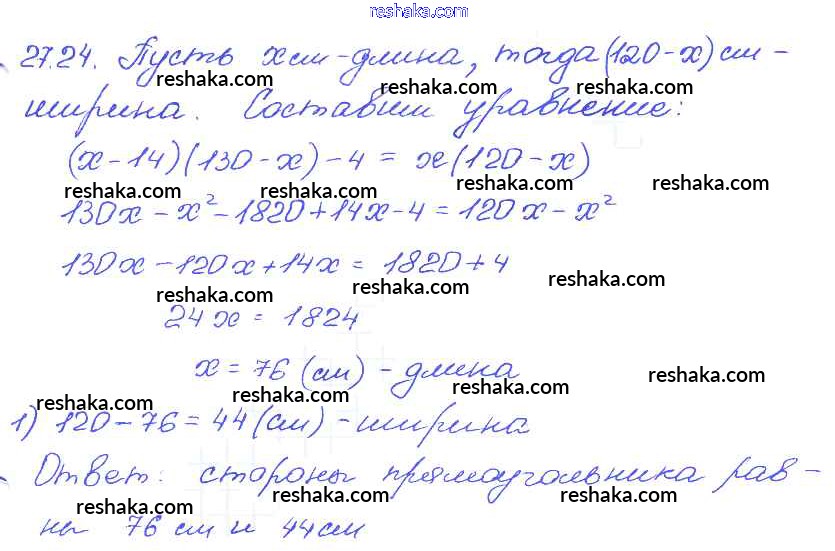 reshaka.com
27.24. Пусть x см - длина, тогда (120-x) см -
reshaka.com reshaka.com reshaka.com
ширина. Составим уравнение:
(x-14)(130-x)-4 = x(120-x)
reshaka.com reshaka.com reshaka.com reshaka.com
130x - x² - 1820 + 14x - 4 = 120x - x²
130x - 120x + 14x = 1820 + 4
reshaka.com reshaka.com reshaka.com
24x = 1824
x = 76 (см) - длина
reshaka.com reshaka.com reshaka.com reshaka.com
1) 120 - 76 = 44 (см) - ширина
Ответ: стороны прямоугольника рав-
reshaka.com reshaka.com reshaka.com
ны 76 см и 44 см